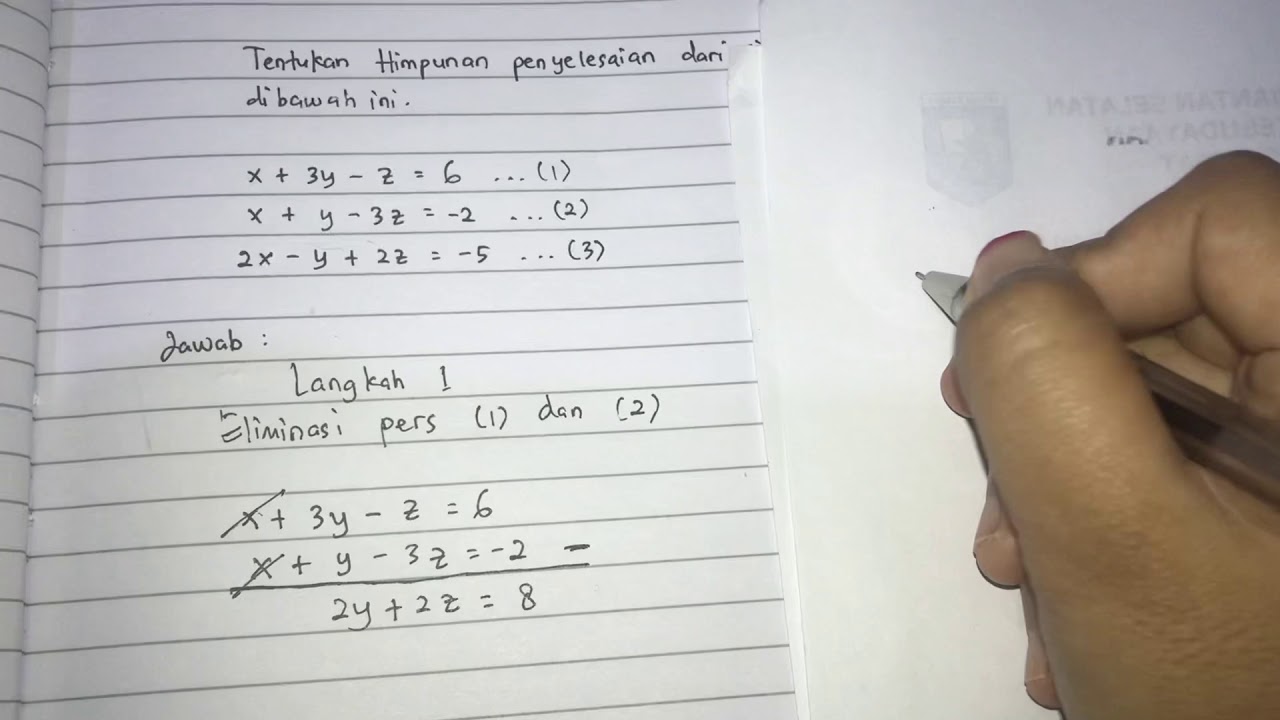 Tentukan Himpunan penyelesaian dari
dibawah ini.
x + 3y - z = 6 ... (1)
x + y - 3z = -2 ... (2)
2x - y + 2z = -5 ... (3)
Jawab :
Langkah 1
Eliminasi pers (1) dan (2)
x + 3y - z = 6
x + y - 3z = -2 -
2y + 2z = 8